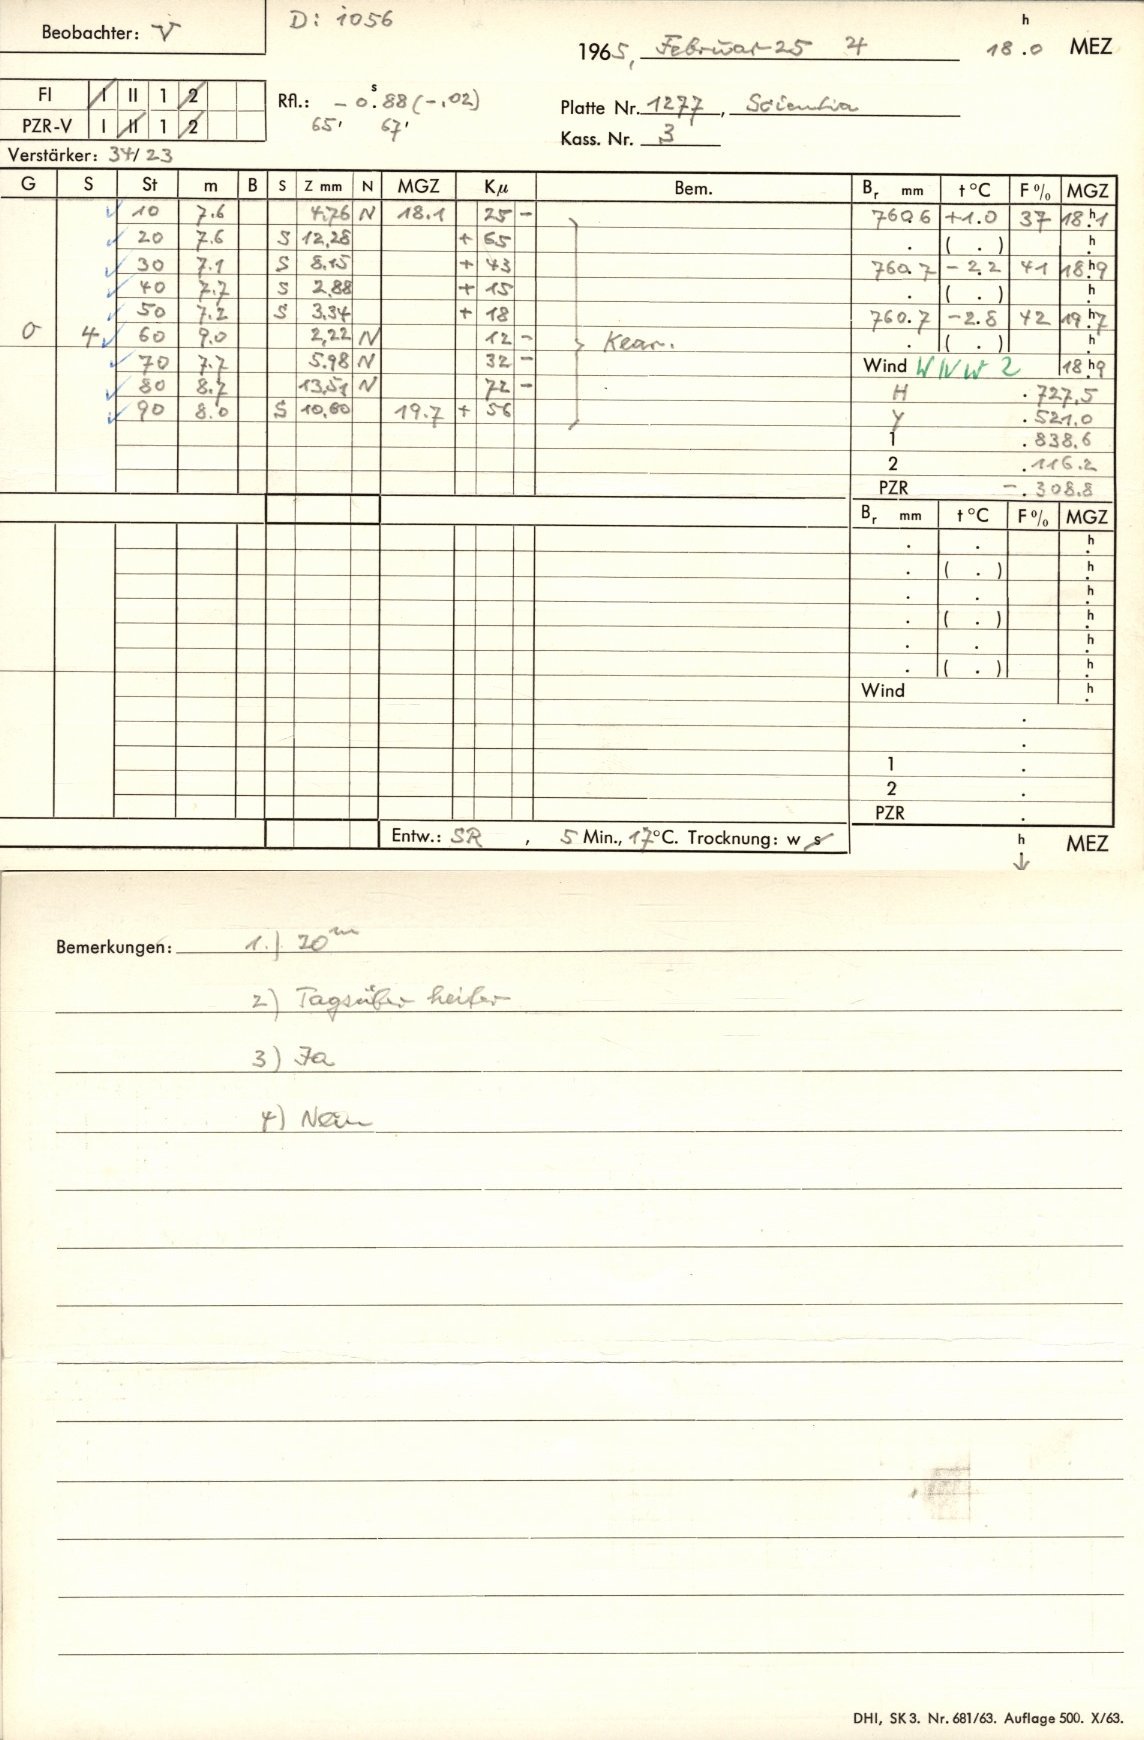 Beobachter: V
D: 1056
h
1965, Februar 25 4 18.0 MEZ
FI I II 1 2
PZR-V I II 1 2
Rfl.: - 0.ˢ88 (-.02)
65' 67'
Platte Nr. 1277, Scientia
Kass. Nr. 3
Verstärker: 34/23
G S St m B S Z mm N MGZ Kμ Bem.
10 7.6 4,76 N 18.1 25 -
20 7.6 S 12,28 + 65
30 7.1 S 8.15 + 43
40 7.7 S 2,88 + 15
50 7.2 S 3,34 + 18
0 4 60 9.0 2,22 N 12 - klar.
70 7.7 5.98 N 32 -
80 8.7 13,51 N 72 -
90 8.0 S 10,60 19.7 + 56
Br mm t °C F % MGZ
760.6 +1.0 37 18.ʰ1
. ( . ) h.
760.7 -2.2 41 18.ʰ9
. ( . ) h.
760.7 -2.8 42 19.ʰ7
. ( . ) h.
Wind WNW 2 18.ʰ9
H .727,5
Y .521.0
1 .838.6
2 .116.2
PZR -.308.8
Br mm t °C F % MGZ
. . h.
. ( . ) h.
. . h.
. ( . ) h.
. . h.
. ( . ) h.
Wind h.
.
.
1 .
2 .
PZR .
Entw.: SR , 5 Min., 17°C. Trocknung: w s
h
↓ MEZ
Bemerkungen: 1.) 20ᵐ
2) Tagsüber heiter
3) Ja
4) Nein
DHI, SK 3. Nr. 681/63. Auflage 500. X/63.